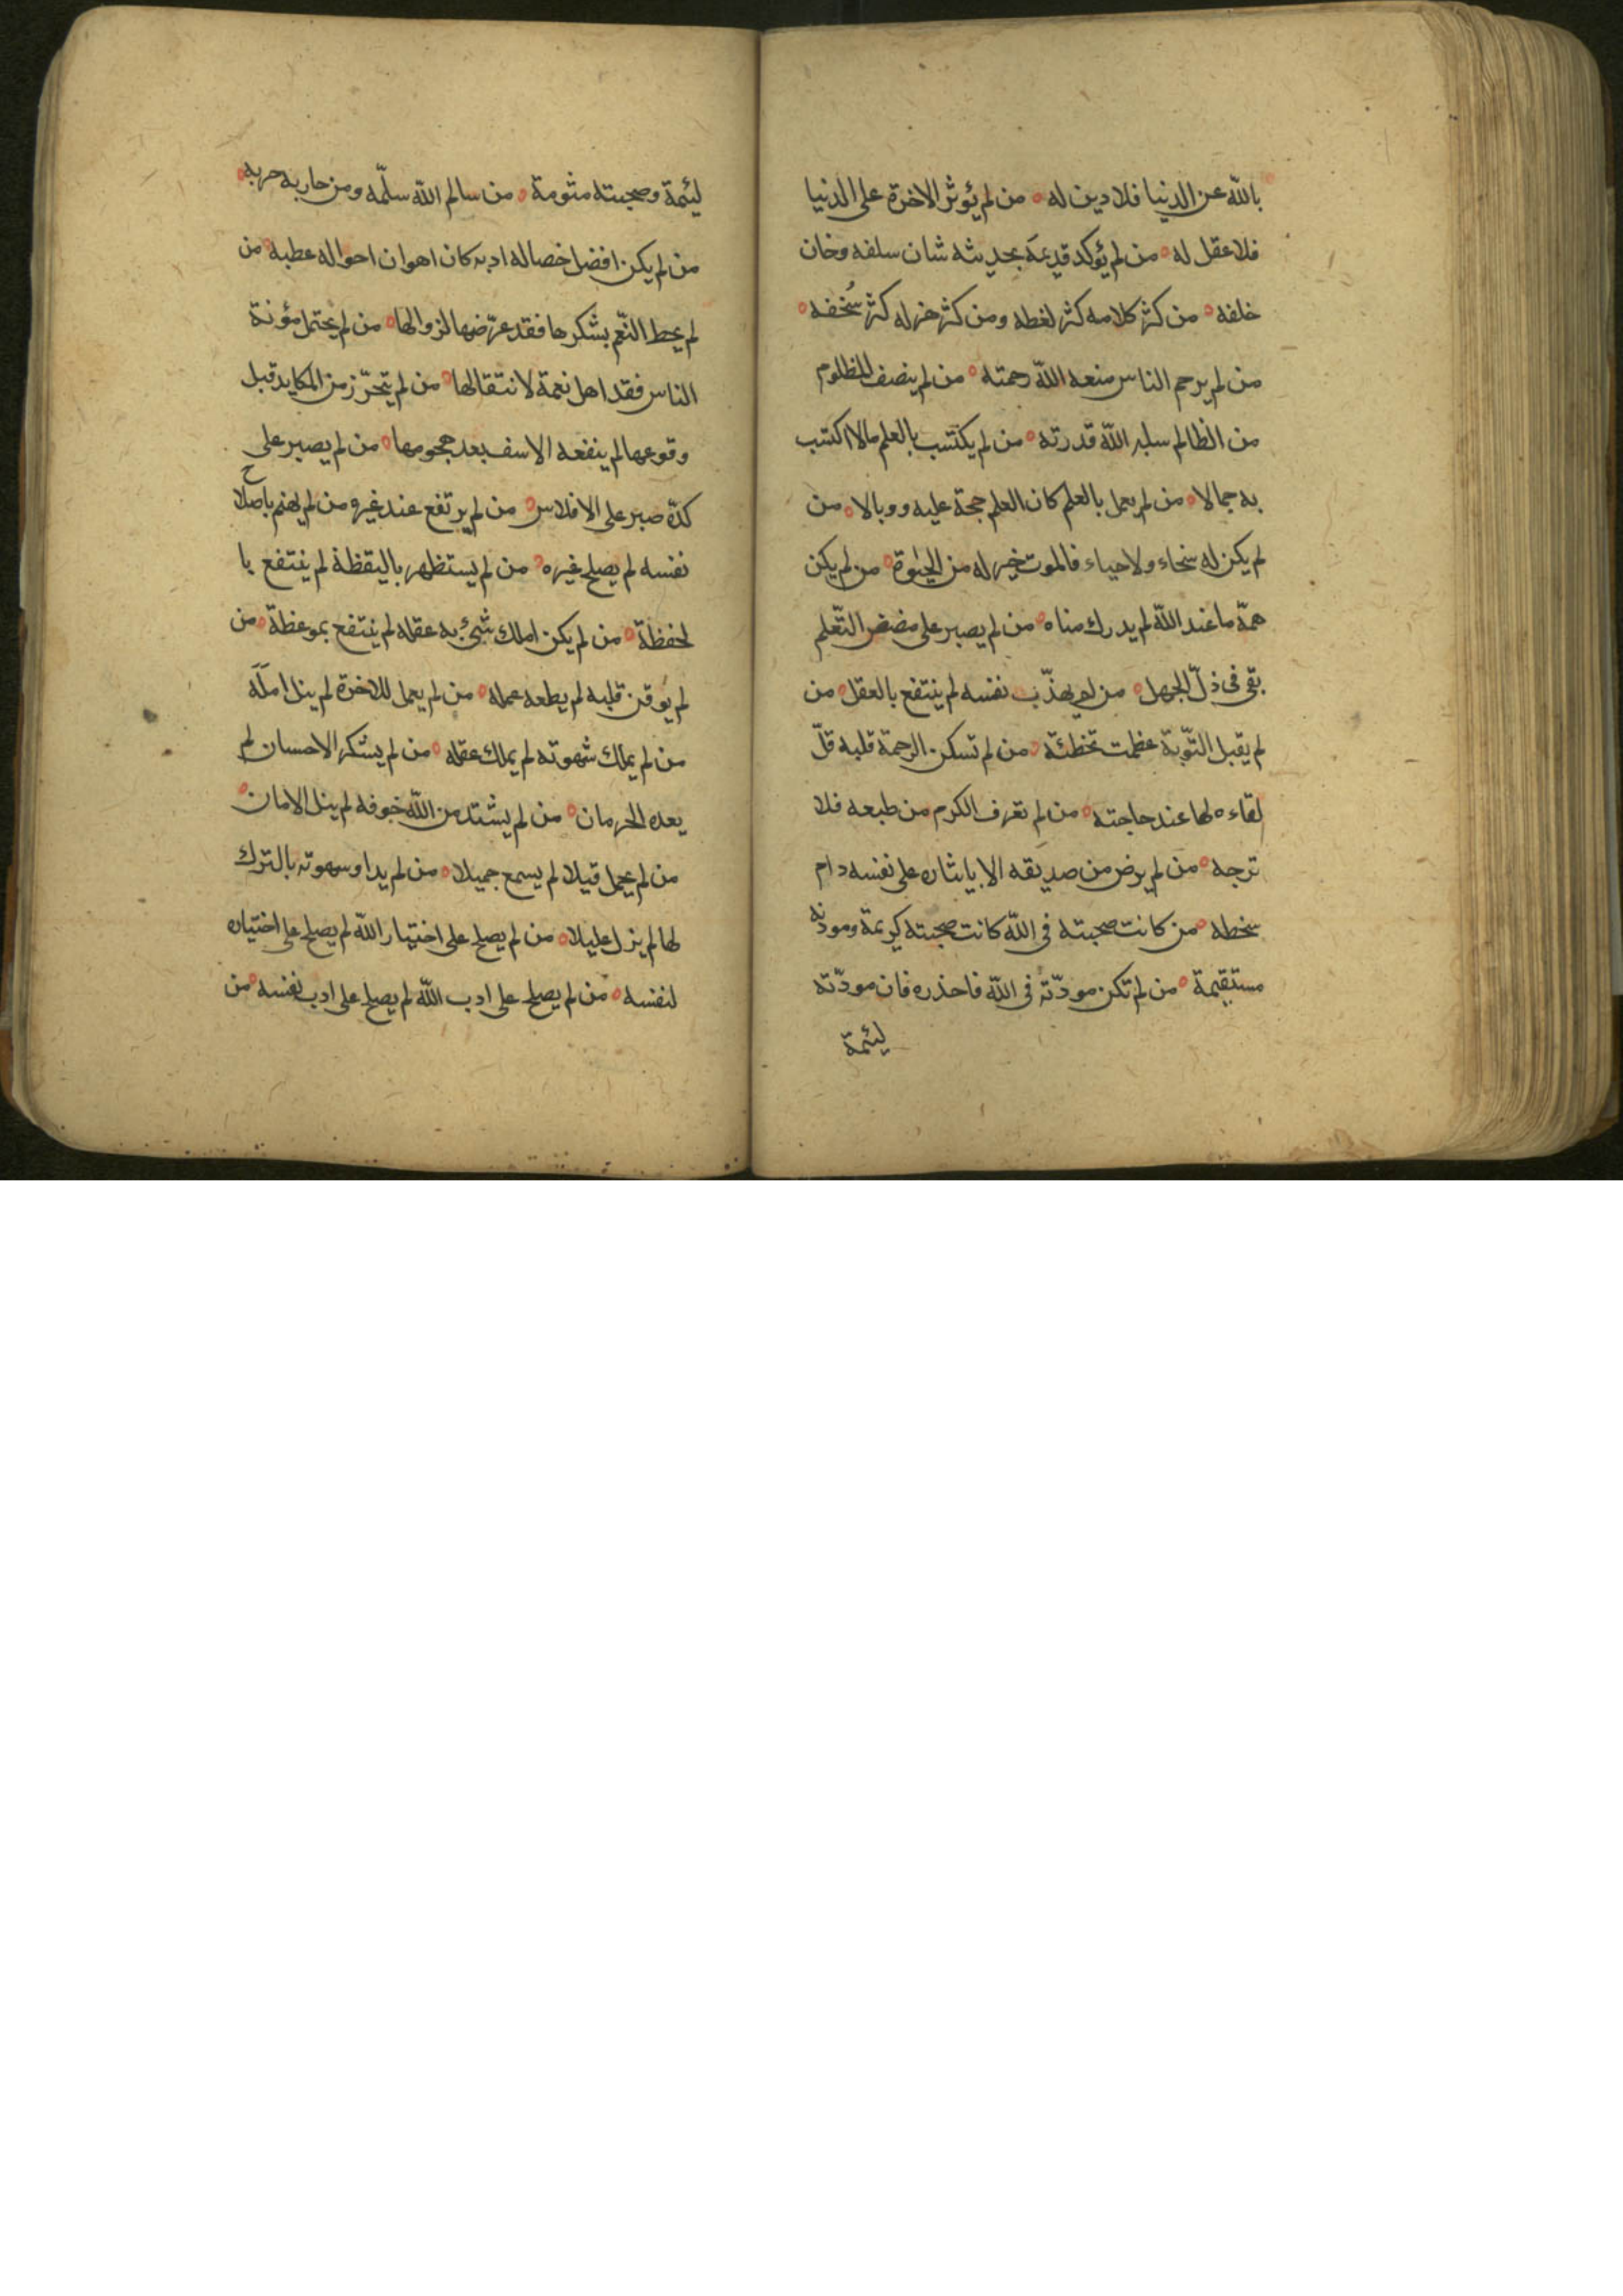 بالله عن الدنيا فلا دين له ٥ من لم يؤثر الاخرة على الدنيا
فلا عقل له ٥ من لم يؤكد قديمَه بحديثه شان سلفه وخان
خلفه ٥ من كثر كلامه كثر لغطه ومن كثر هزله كثر سُخفه ٥
من لم يرحم الناس منعه الله رحمته ٥ من لم ينصف المظلوم
من الظالم سلبه الله قدرته ٥ من لم يكتسب بالعلم مالا اكتسب
به جمالا ٥ من لم يعمل بالعلم كان العلم حجة عليه ووبالا ٥ من
لم يكن له سخاء ولا حياء فالموت خير له من الحيٰوة ٥ من لم يكن
همّه ما عند الله لم يدرك مناه ٥ من لم يصبر على مضض التّعلم
بقى فى ذلّ الجهل ٥ من لم يهذّب نفسه لم ينتفع بالعقل ٥ من
لم يقبل التّوبة عظمت تخطئة ٥ من لم تسكن الرحمة قلبه قلّ
لقاءه لها عند حاجته ٥ من لم تعرف الكرم من طبعه فلا
ترجه ٥ من لم يرض من صديقه الا بايثاره على نفسه دام
سخطه ٥ من كانت صحبته فى الله كانت صحبته كريمة ومودته
مستقيمة ٥ من لم تكن مودّته فى الله فاحذره فان مودّته
ليئمة
ليئمة وصحبته مثومة ٥ من سالم الله سلّمه ومن حاربه حربه ٥
من لم يكن افضل خصاله ادبه كان اهوان احواله عطبه ٥ من
لم يحط النّعم بشكرها فقد عرّضها لزوالها ٥ من لم يحتمل مؤنة
الناس فقد اهل نعمة لانتقالها ٥ من لم يتحرّز من المكايد قبل
وقوعها لم ينفعه الاسف بعد هجومها ٥ من لم يصبر على
كدّه صبر على الافلاس ٥ من لم يرتفع عند غيره من لم يهتم باصلاح
نفسه لم يصلح غيره ٥ من لم يستظهر باليقظة لم ينتفع با
لحفظة ٥ من لم يكن املك شىٔ به عقله لم ينتفع بموعظة ٥ من
لم يوقن قلبه لم يطعه عمله ٥ من لم يعمل للاخرة لم ينل املَه
من لم يملك شهوته لم يملك عقله ٥ من لم يشكر الاحسان لم
يعده الحرمان ٥ من لم يشتد من الله خوفه لم ينل الامان ٥
من لم يحمل قيلا لم يسمع جميلا ٥ من لم يداو سهوته بالترك
لها لم يزل عليلا ٥ من لم يصلح على اختيار الله لم يصلح على اختياره
لنفسه ٥ من لم يصلح على ادب الله لم يصلح على ادب نفسه ٥ من